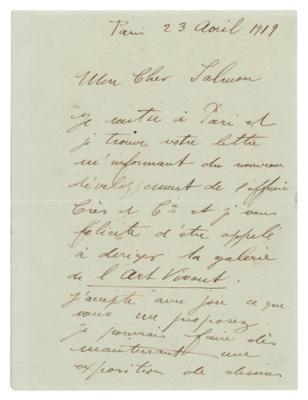 Paris 23 Avril 1919
Mon Cher Salmon
Je rentre à Paris et
je trouve votre lettre
m'informant du nouveau
développement de l'affaire
Crès et Cie et je vous
félicite d'être appelé
à diriger la galerie
de l'Art Vivant.
j'accepte avec joie ce que
vous me proposez
je pourrais faire dès
maintenant une
exposition de dessins